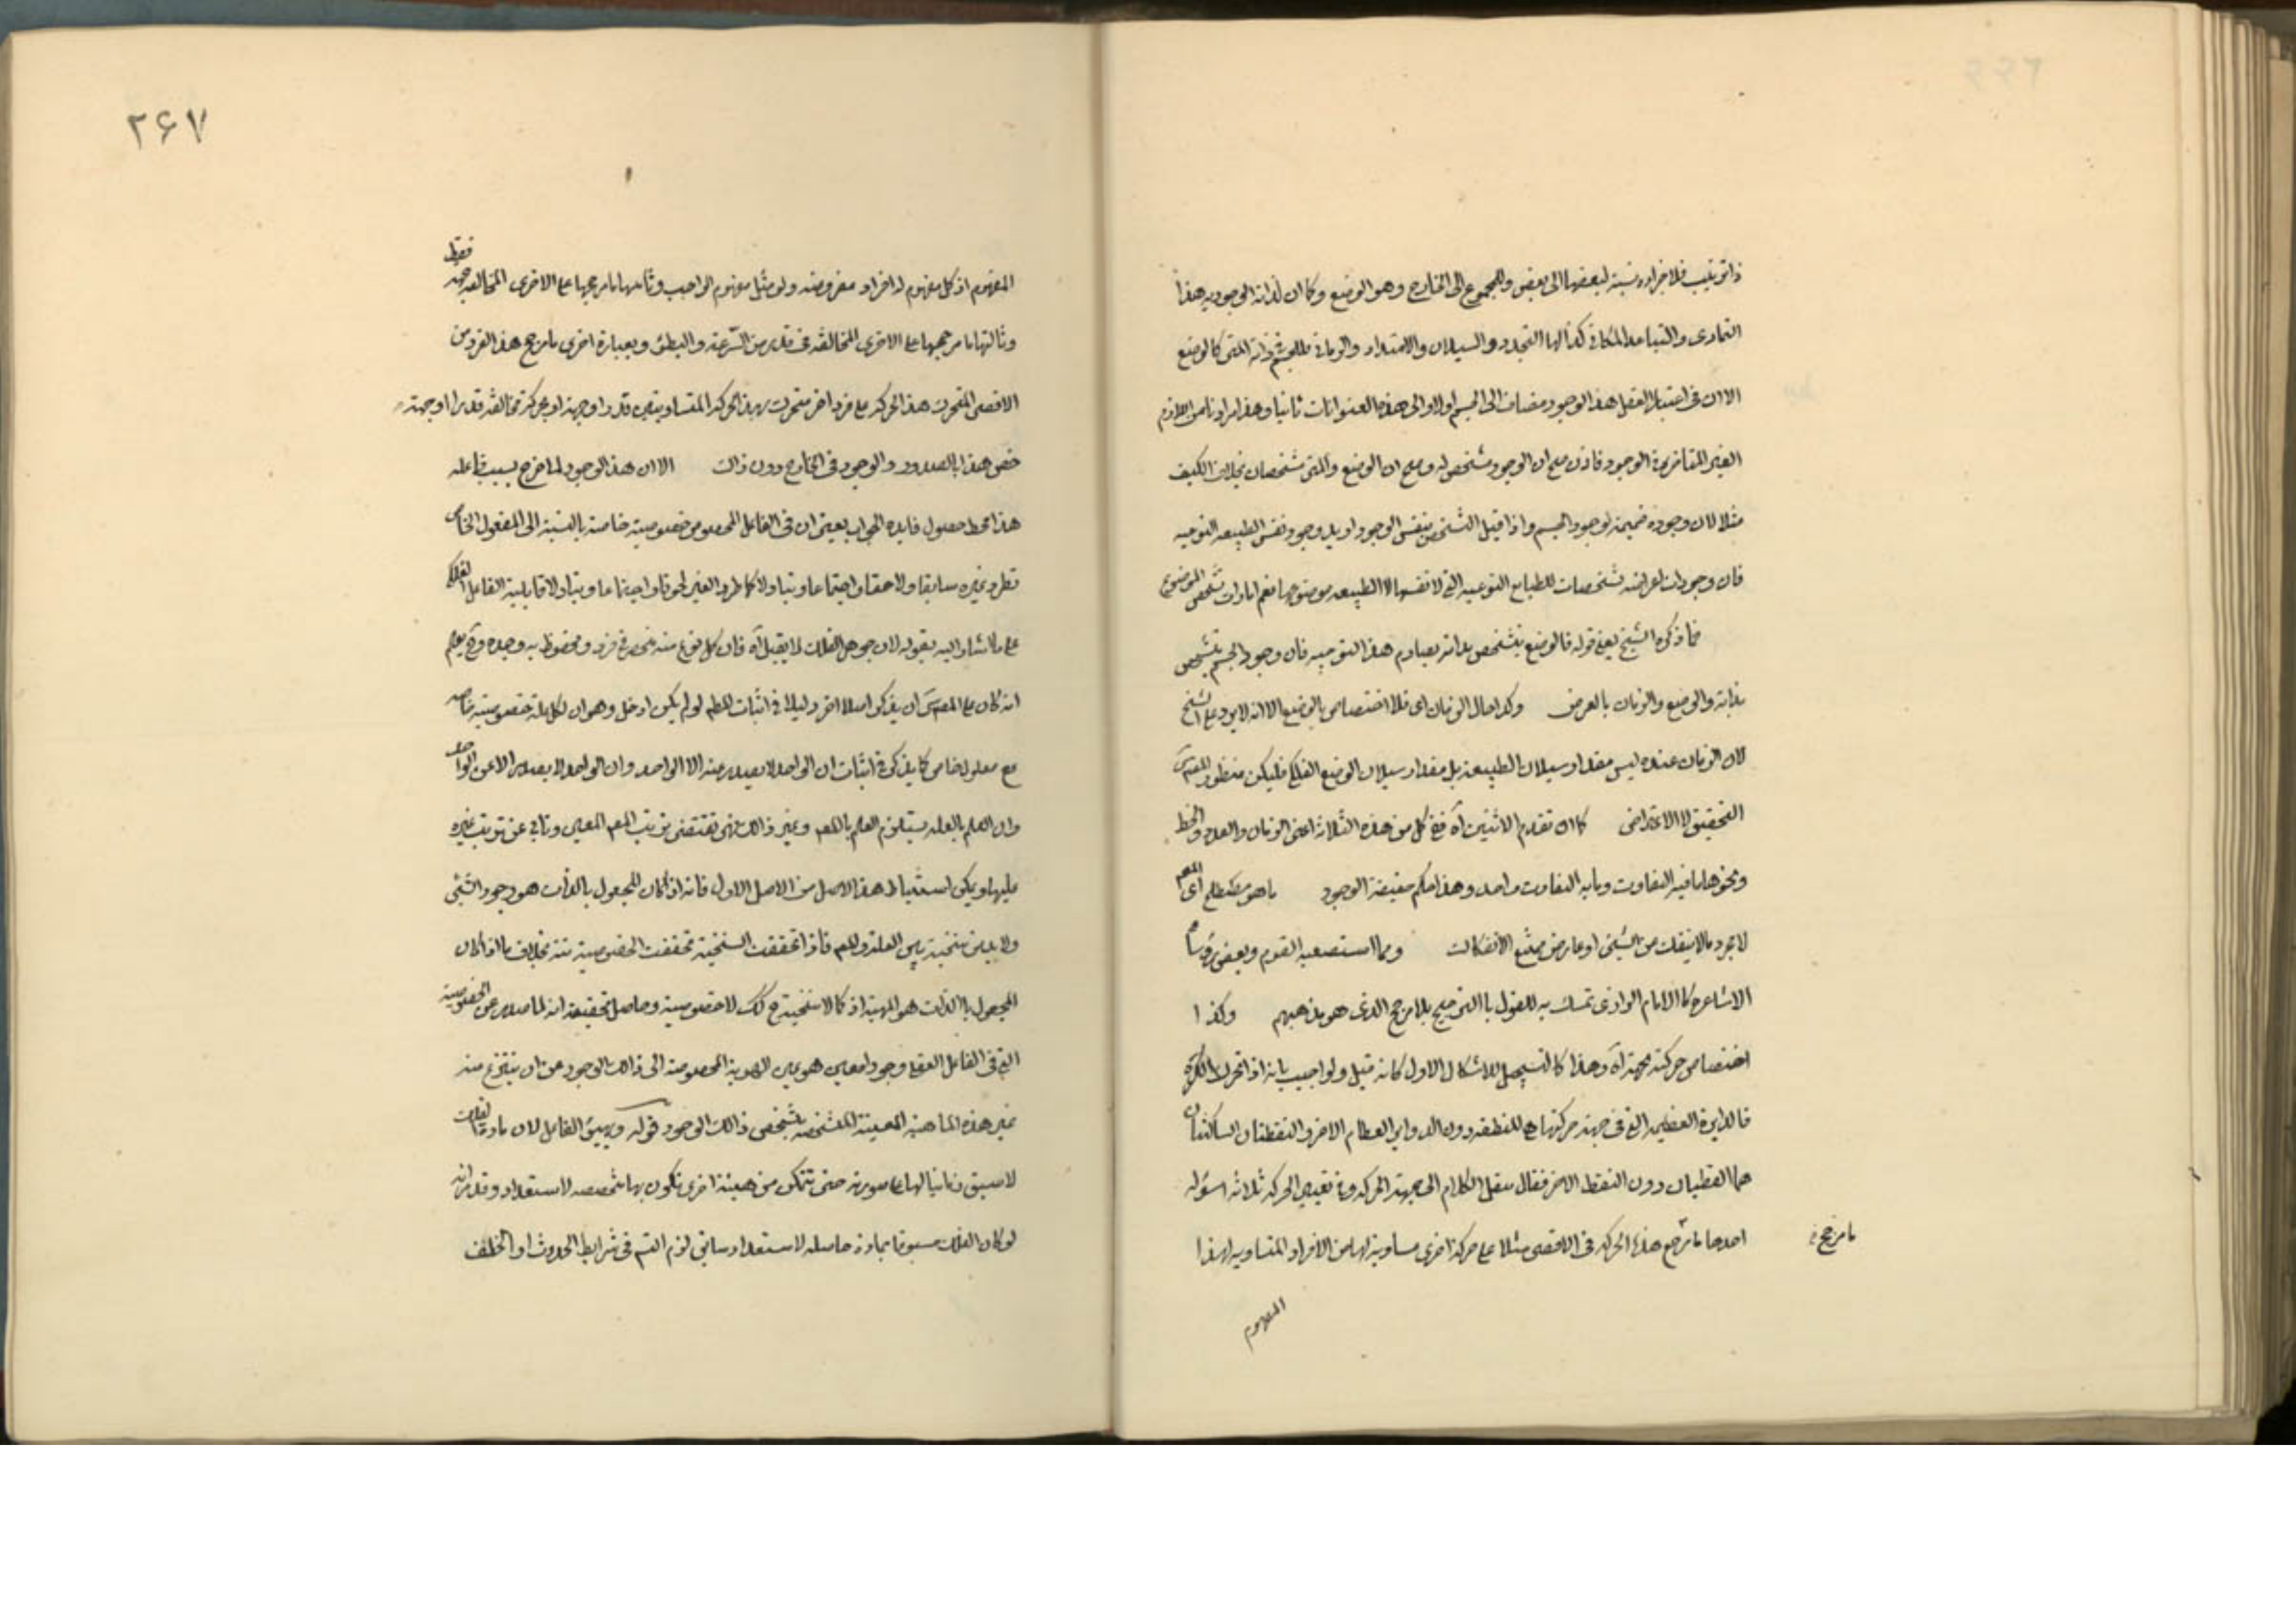 ذا ترتيب فلاجزائه نسبة لبعضها الى بعض وللمجموع الى الخارج وهو الوضع وكما ان لذاته الوجودية هذا
التمادى والتباعد المكانى كذلك لها التجدد والسيلان والامتداد والزمانى فللجسم فى ذاته المتى كالوضع
الا ان فى اعتبار العقل هذا الوجود مضاف الى الجسم اولا والى هذه العنوانات ثانيا وهذا مرادنا من اللازم
الغير المتاخر فى الوجود فاذن صح ان الوجود مشخص له وصح ان الوضع والمتى مشخصان بخلاف الكيف
مثلا لان وجوده ضميمة لوجود الجسم واذا قيل التشخص بنفس الوجود اريد وجود نفس الطبيعه النوعيه
فان وجودات لعرضه تشخصات للطبايع النوعيه التى لانفسها لا الطبيعه موضوعها نعم امارات تشخص الموضوع
فما ذكره الشيخ يعنى قوله فالوضع يتشخص بذاته يصادم هذا التوجيه فان وجود الجسم يتشخص
بذاته والوضع والزمان بالعرض وكذا حال الزمان اى فلا اختصاص بالوضع الا انه لا يرد على الشيخ
لان الزمان عنده ليس مقدار سيلان الطبيعة بل مقدار سيلان الوضع الفلكى فليكن منظور المص
التحقيق لا الاعتراض كما ان تقدم الاثنين آه ففى كل من هذه الثلاثة اعنى الزمان والعدد والخط
ونحوها ما فيه التفاوت وما به التفاوت واحد وهذا حكم حقيقة الوجود ما هو مصطلح اى المعم
لا مجرد ما لا ينفك من الشيئ او عارض ممتنع الانفكاك ومما استصعبه القوم وبعض رؤسا
الاشاعره كالامام الرازى تمسك به للقول بالترجيح بلا مرجح الذى هو مذهبهم وكذا
اختصاص حركته بجهة آه وهذا كالتسجيل للاشكال الاول كانه قيل ولو اجيب بانه اذا تحرك الكره
فالدايرة العظيمه التى فى جهة حركتها هى المنطقه دون الدواير العظام الاخر والنقطتان الساكنتان
هما القطبان دون النقط الاخر فقال ننقل الكلام الى جهة الحركه وفى تعيين الحركه ثلاثة اسؤله
احدها ما مرجح هذه الحركه فى الاقصى مثلا على حركة اخرى مساوية لها من الافراد المتساويه لهذا
ما مرجح
المفهوم
٢۶٧
المفهوم اذ كل مفهوم له افراد مفروضه ولو مثل مفهوم الواجب وثانيها ما مرجحها على الاخرى المخالفه جهة
فقط
وثالثها ما مرجحها على الاخرى المخالفه فى قدر من السّرعة والبطئ وبعبارة اخرى ما مرجح هذا الفرد من
الاقصى المتحرك هذه الحركه على فرد اخر متحرك بهذه الحركه المتساويتين قدرا وجهة او بحركة مخالفه قدرا او جهة
خص هذا بالصدور والوجود فى الخارج دون ذاك الا ان هذا الوجود لما خرج بسبب فاعله
هذا محط حصول فايده الجواب يعنى ان فى الفاعل المخصوص خصوصية خاصة بالنسبة الى المفعول الخاص
تطرد غيره سابقا ولاحقا واجتماعا وتبادلا كما طرد الغير لحوقا واجتماعا وتبادلا قابلية القابل الفلكى
على ما اشار اليه بقوله لان جوهر الفلك لا يقبل آه فان كل نوع منه منحصر فى فرد ومحفوظ به وحده وح يعلم
انه كان على المص ان يذكر اصلا اخر دليلا فى اثبات المطم لو لم يكن ادخل وهو ان لكل علة خصوصية خاصه
مع معلول خاص كما يذكر فى اثبات ان الواحد لا يصدر منه الا الواحد وان الواحد لا يصدر الا عن الواحد
وان العلم بالعله يستلزم العلم بالمعم وغير ذالك فهى تقتضى ترتيب المعم المعين وتابى عن ترتيب غيره
عليها ويمكن استنباط هذا الاصل من الاصل الاول فانه اذا كان المجعول بالذات هو وجود الشيئ
ولابد من سنخية بين العلة والمعم فاذا تحققت السنخية تحققت الخصوصية منه بخلاف ما اذا كان
المجعول بالذات هو المهية اذ كما لا سنخية ح كك لا خصوصية وحاصل تحقيقه انه لما صدر عن الخصوصية
التى فى الفاعل العقلى وجود معين هو عين الهوية المخصوصة الى ذالك الوجود عن ان ينتزع منه
غير هذه الماهية المعينة المتشخصه بتشخص ذالك الوجود قوله وتهيئ القابل لان مادة الفلك
لا سبق زمانيا لها على صورته حتى تتمكن من هيئة اخرى تكون بها مخصصه لاستعداد وقد مر انه
لو كان الفلك مسبوقا بمادة حامله لاستعداد سابق لزم التسم فى شرايط الحدوث او الخلف